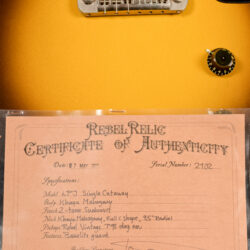 REBELRELIC
CERTIFICATE OF AUTHENTICITY
Date: 07 MAY
Serial Number: 2102
Specifications:
Model: LPJ Single Cutaway
Body: Khaya Mahogany
Finish: 2-tone Sunburst
Neck: Khaya Mahogany, Full C shape, 9.5" Radius
Pickups: Rebel Vintage
Features: Bakelite guard